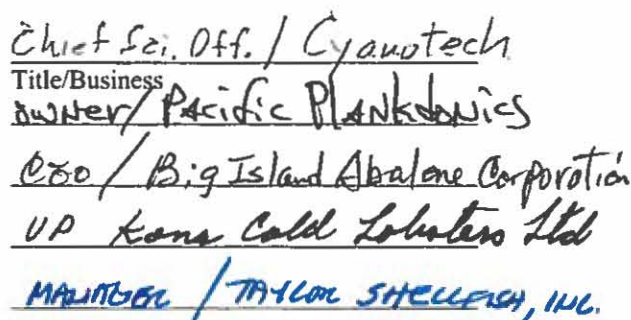 Chief Sci. Off. / Cyanotech
Title/Business
owner/ Pacific Planktonics
CEO / Big Island Abalone Corporation
VP Kona Cold Lobsters Ltd
MANAGER / TAYLOR SHELLFISH, INC.